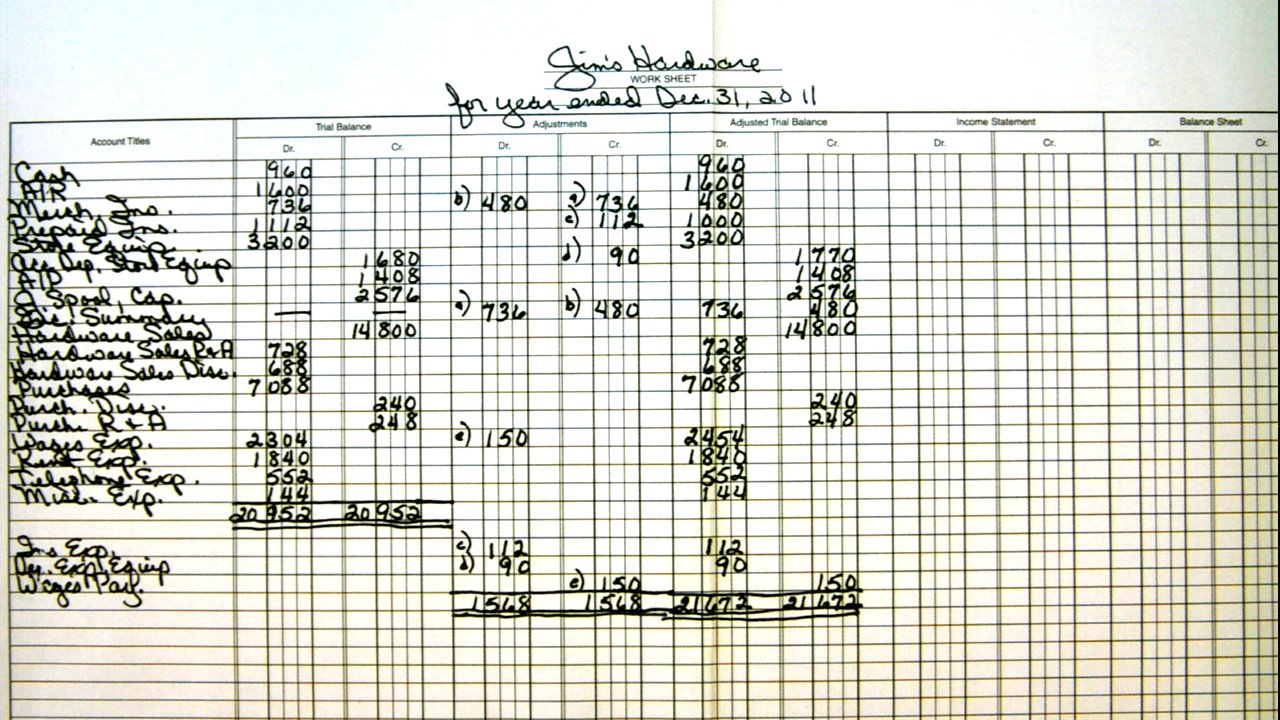 Jim's Hardware
WORK SHEET
for year ended Dec. 31, 2011
Account Titles Trial Balance Adjustments Adjusted Trial Balance Income Statement Balance Sheet
Dr. Cr. Dr. Cr. Dr. Cr. Dr. Cr. Dr. Cr.
Cash 960 960
A/R 1600 1600
Merch. Inv. 736 b) 480 a) 736 480
Prepaid Ins. 1112 c) 112 1000
Store Equip. 3200 3200
Acc. Dep. Store Equip 1680 d) 90 1770
A/P 1408 1408
J. Spool, Cap. 2576 2576
Inc. Summary — — a) 736 b) 480 736 480
Hardware Sales 14800 14800
Hardware Sales R+A 728 728
Hardware Sales Disc. 688 688
Purchases 7088 7088
Purch. Disc. 240 240
Purch. R+A 248 248
Wages Exp. 2304 e) 150 2454
Rent Exp. 1840 1840
Telephone Exp. 552 552
Misc. Exp. 144 144
20952 20952
Ins Exp. c) 112 112
Dep. Exp. Equip d) 90 90
Wages Pay. e) 150 150
1568 1568 21672 21672